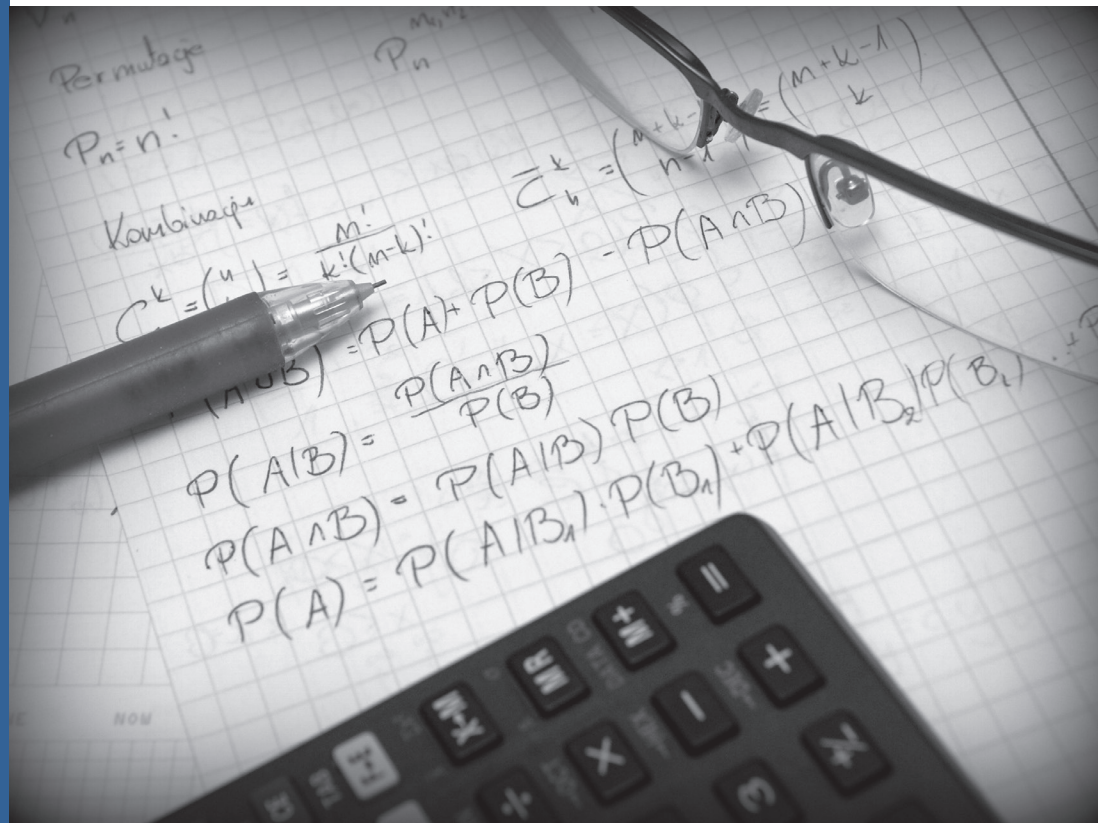 Permutacje
P_n
P_n = n!
Kombinacje
C^k = (n ) = n! / k!(n-k)!
C̄_n^k = (n+k- n-1) = (n+k-1 k)
(A∪B) = P(A) + P(B) - P(A∩B)
P(A|B) = P(A∩B) / P(B)
P(A∩B) = P(A|B) P(B)
P(A) = P(A|B₁)·P(B₁) + P(A|B₂)P(B₂) +
NOW
=
M+
MR
X→M
+
−
×
÷
3